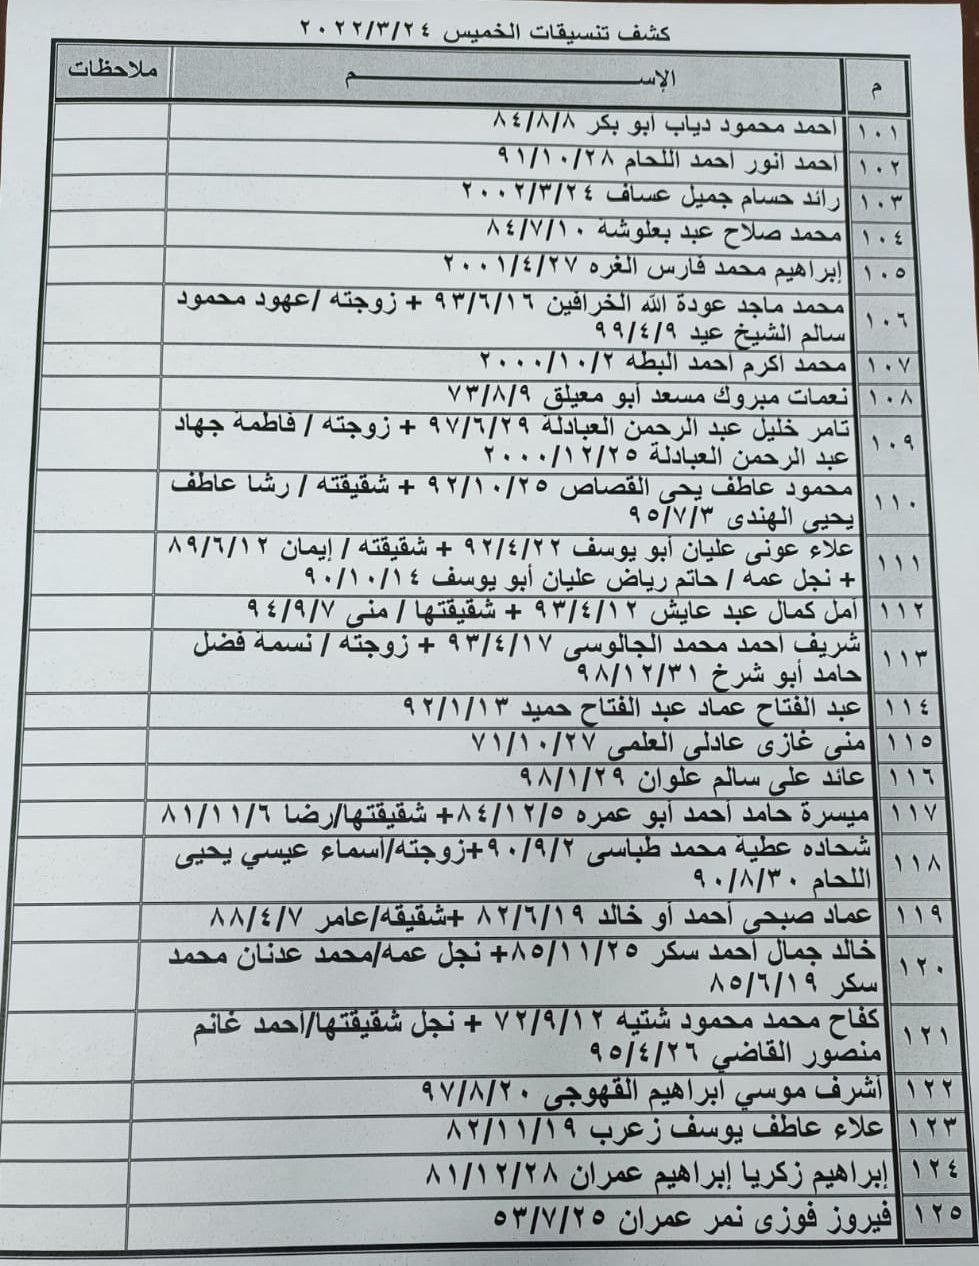 كشف تنسيقات الخميس ٢٠٢٢/٣/٢٤
م الإســـــــــــم ملاحظات
١٠١ احمد محمود دياب ابو بكر ٨٤/٨/٨
١٠٢ احمد انور احمد اللحام ٩١/١٠/٢٨
١٠٣ رائد حسام جميل عساف ٢٠٠٢/٣/٢٤
١٠٤ محمد صلاح عبد بعلوشة ٨٤/٧/١٠
١٠٥ إبراهيم محمد فارس الغره ٢٠٠١/٤/٢٧
١٠٦ محمد ماجد عودة الله الخرافين ٩٣/٦/١٦ + زوجته /عهود محمود
سالم الشيخ عيد ٩٩/٤/٩
١٠٧ محمد اكرم احمد البطه ٢٠٠٠/١٠/٢
١٠٨ نعمات مبروك مسعد ابو معيلق ٧٣/٨/٩
١٠٩ تامر خليل عبد الرحمن العبادلة ٩٧/٦/٢٩ + زوجته / فاطمة جهاد
عبد الرحمن العبادلة ٢٠٠٠/١٢/٢٥
١١٠ محمود عاطف يحى القصاص ٩٢/١٠/٢٥ + شقيقته / رشا عاطف
يحيى الهندى ٩٥/٧/٣
١١١ علاء عونى عليان أبو يوسف ٩٢/٤/٢٢ + شقيقته / إيمان ٨٩/٦/١٢
+ نجل عمه / حاتم رياض عليان أبو يوسف ٩٠/١٠/١٤
١١٢ امل كمال عبد عايش ٩٣/٤/١٢ + شقيقتها / منى ٩٤/٩/٧
١١٣ شريف احمد محمد الجالوسى ٩٣/٤/١٧ + زوجته / نسمة فضل
حامد أبو شرخ ٩٨/١٢/٣١
١١٤ عبد الفتاح عماد عبد الفتاح حميد ٩٢/١/١٣
١١٥ منى غازى عادلى العلمى ٧١/١٠/٢٧
١١٦ عائد على سالم علوان ٩٨/١/٢٩
١١٧ ميسرة حامد أحمد أبو عمره ٨٤/١٢/٥+ شقيقتها/رضا ٨١/١١/٦
١١٨ شحاده عطية محمد طباسى ٩٠/٩/٢+زوجته/اسماء عيسي يحيى
اللحام ٩٠/٨/٣٠
١١٩ عماد صبحى أحمد او خالد ٨٢/٦/١٩ +شقيقه/عامر ٨٨/٤/٧
١٢٠ خالد جمال احمد سكر ٨٥/١١/٢٥+ نجل عمه/محمد عدنان محمد
سكر ٨٥/٦/١٩
١٢١ كفاح محمد محمود شتيه ٧٢/٩/١٢ + نجل شقيقتها/احمد غانم
منصور القاضي ٩٥/٤/٢٦
١٢٢ أشرف موسي ابراهيم القهوجى ٩٧/٨/٢٠
١٢٣ علاء عاطف يوسف زعرب ٨٢/١١/١٩
١٢٤ إبراهيم زكريا إبراهيم عمران ٨١/١٢/٢٨
١٢٥ فيروز فوزى نمر عمران ٥٣/٧/٢٥